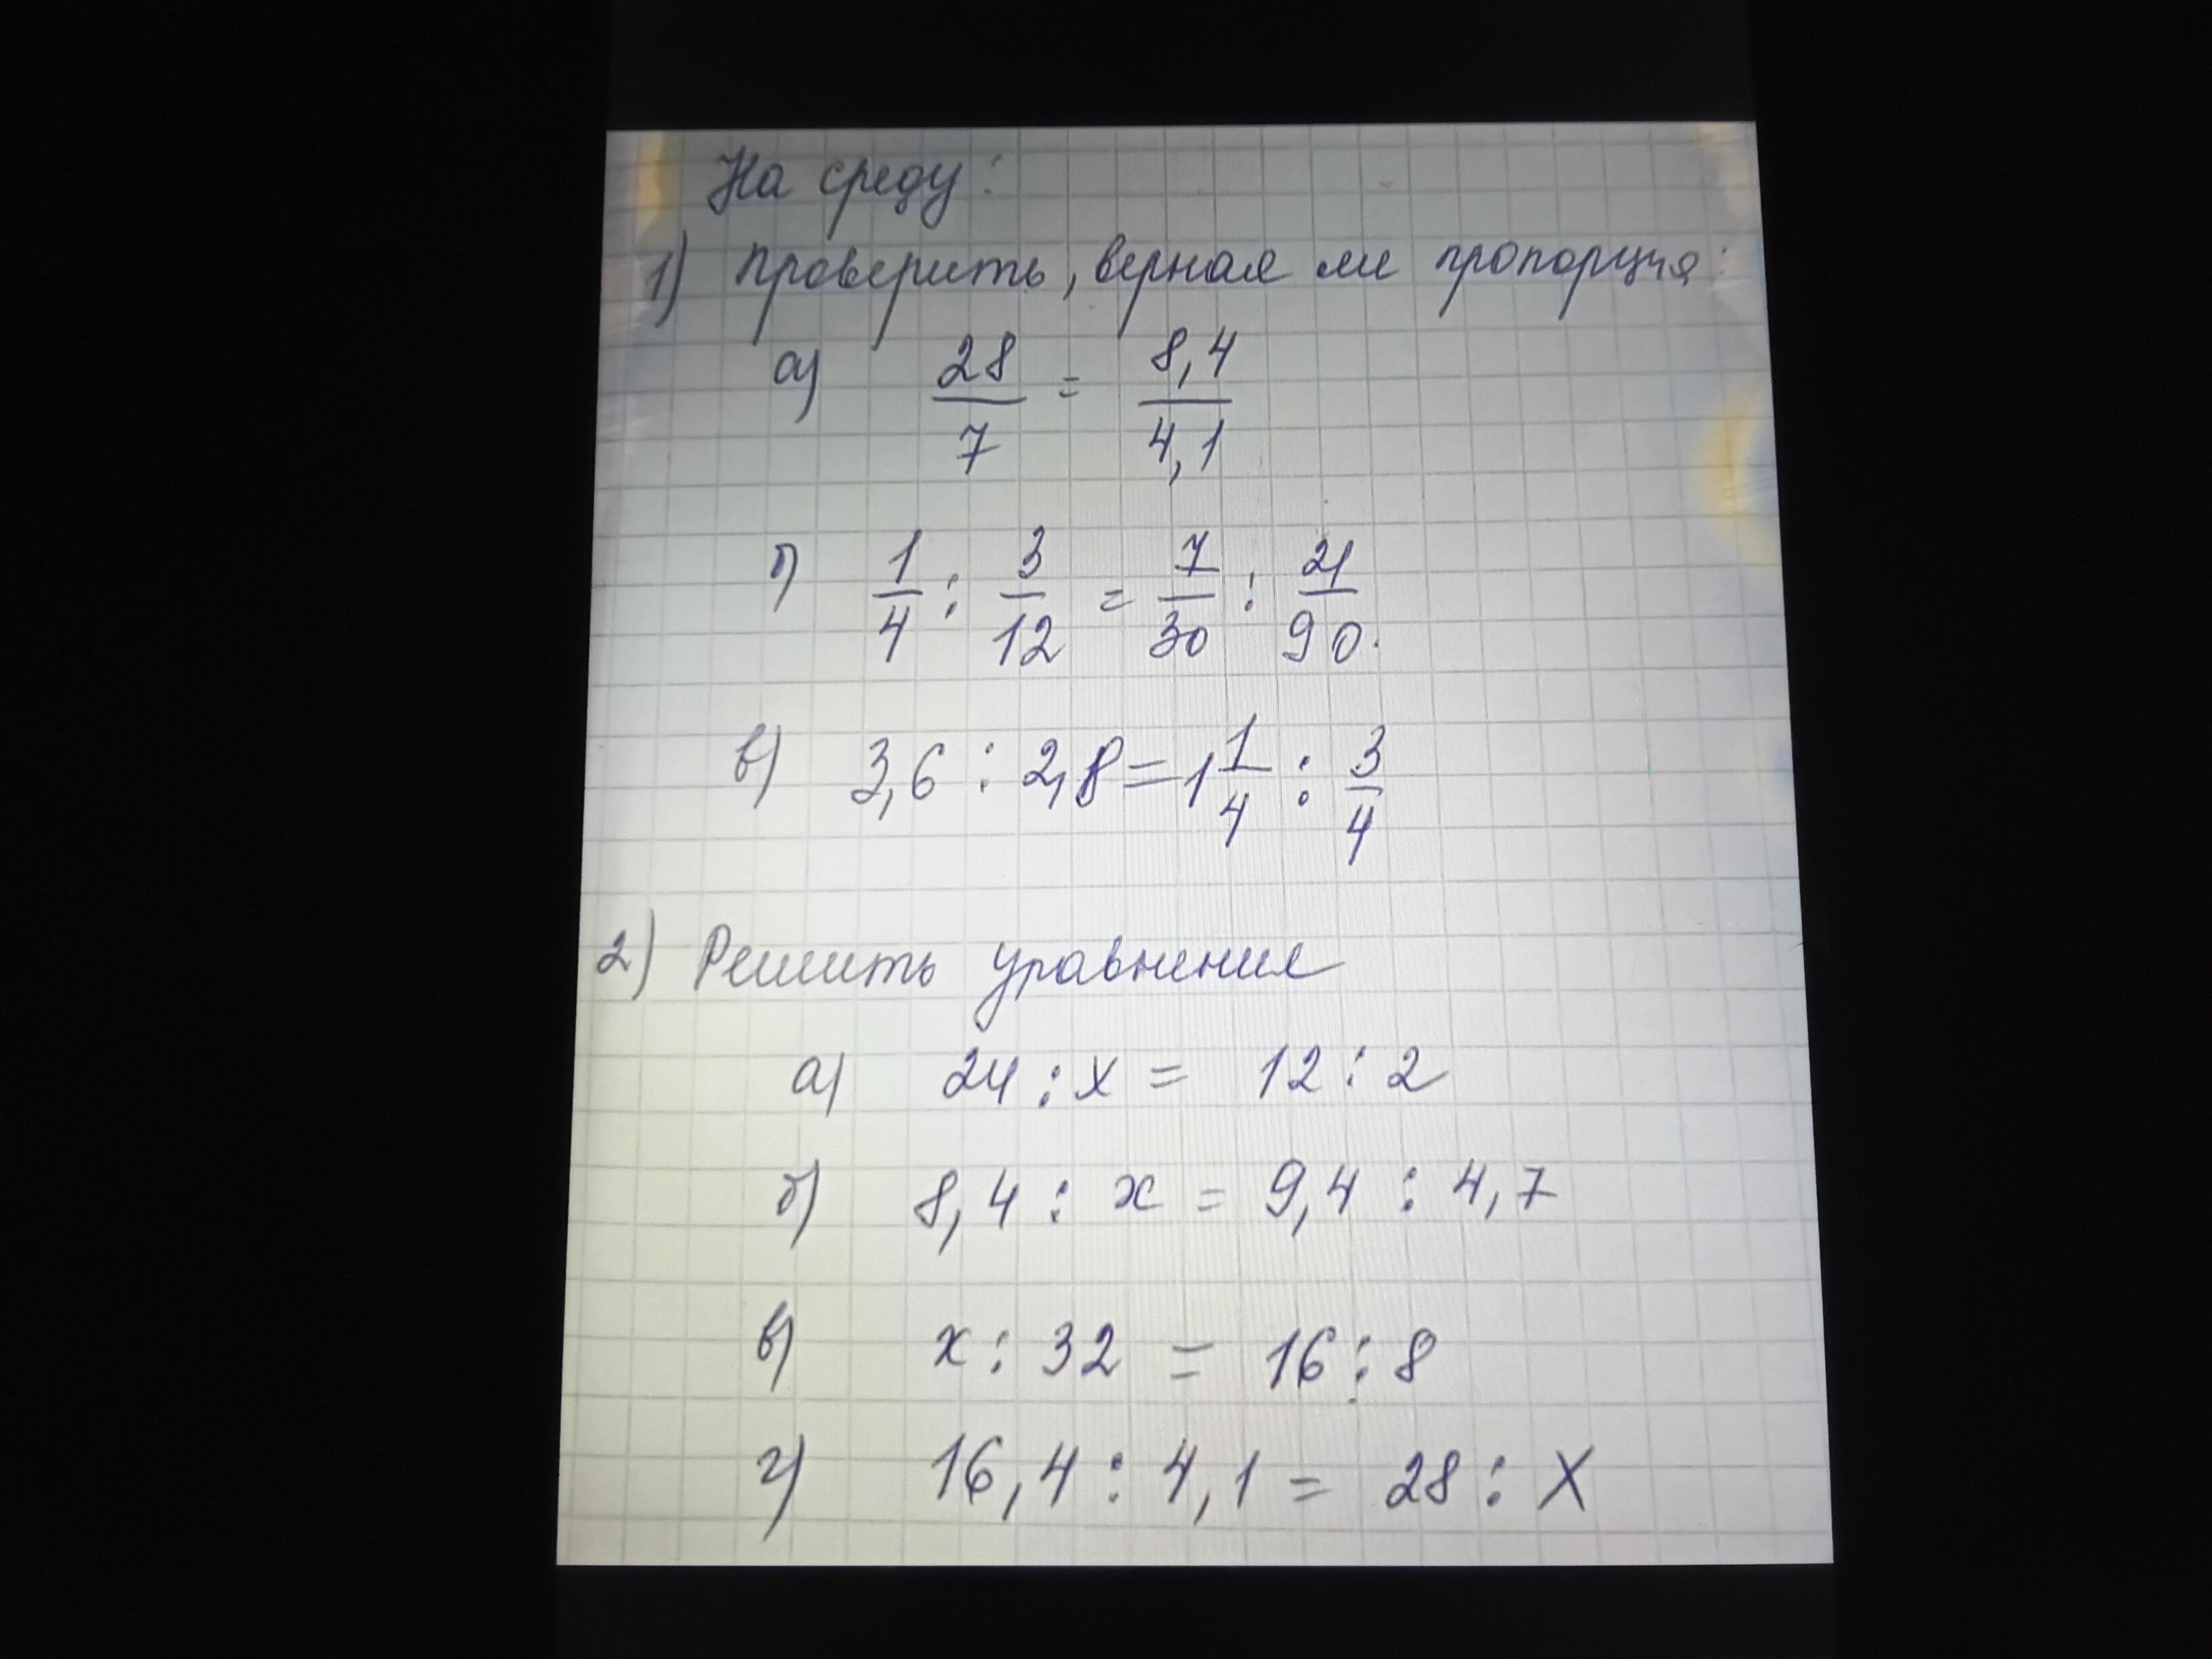 На среду:
1) Проверить, верная ли пропорция:
а) 28/7 = 8,4/4,1
б) 1/4 : 3/12 = 7/30 : 21/90.
в) 3,6 : 2,8 = 1 1/4 : 3/4
2) Решить уравнения
а) 24 : х = 12 : 2
б) 8,4 : х = 9,4 : 4,7
в) х : 32 = 16 : 8
г) 16,4 : 4,1 = 28 : Х